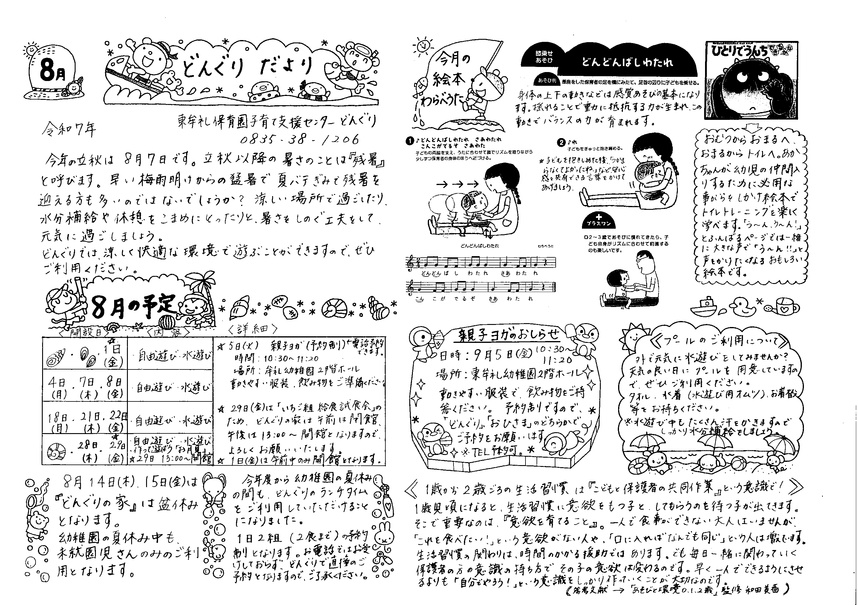 8月
どんぐり だより
令和7年
東牟礼保育園子育て支援センター どんぐり
0835-38-1206
今年の立秋は8月7日です。立秋以降の暑さのことは『残暑』
と呼びます。早い梅雨明けからの猛暑で夏バテぎみで残暑を
迎える方も多いのではないでしょうか? 涼しい場所で過ごしたり、
水分補給や休憩をこまめにとったりと、暑さをしのぐ工夫をして、
元気に過ごしましょう。
どんぐりでは、涼しく快適な環境で遊ぶことができますので、ぜひ
ご利用ください。
8月の予定
〈開設日〉
〈内容〉
〈詳細〉
1日(金)
自由遊び・水遊び
4日(月)・7日(木)・8日(金)
自由遊び・水遊び
18日(月)・21日(木)・22日(金)
自由遊び・水遊び
28日(木)・29日(金)
自由遊び・水遊び
★29日 13:00〜開館
★5日(火) 親子ヨガ(予約制)
時間:10:30〜11:20
場所:牟礼幼稚園2階ホール
動きやすい服装、飲み物をご準備ください
★29日(金)は「いちご組給食試食会」の
ため、どんぐりの家は午前は閉館
午後は13:00〜開館となりますので、
よろしくお願いいたします。
★1日(金)は午前中のみ開館となります。
8月14日(木)、15日(金)は
『どんぐりの家』は盆休み
となります。
幼稚園の夏休み中も、
未就園児さんのみのご利
用となります。
今年度から幼稚園の夏休み
の間も、どんぐりのランチタイム
をご利用していただけることに
なりました。
1日2組(2食まで)の予約
制となります。お電話ではお受
けしておらず、どんぐりで直接のご
予約となりますので、ご了承ください。
今月の
絵本
わらべうた
感染せ
あそび
どんどんばしわたれ
あそび方
身体の上下の動きなどは感覚あそびの基本になり
ます。揺れることで重力に抵抗する力が生まれ、この
動きでバランスの力が育まれます。
❶♪どんどんばしわたれ さあわたれ
こんこがでるぞ さあわたれ
❷♪れ
子どもをぎゅっと抱き締める。
プラスワン
0２〜３歳であそびに慣れてきたら、子
ども自身がリズムに合わせて前進する
のも楽しいです。
どんどんばしわたれ
わらべうた
どんどんばし わたれ さあ わたれ
こ こ が で る ぞ さあ わたれ
ひとりでうんち
おむつからおまるへ、
おまるからトイレへ。あか
ちゃんが幼児の仲間入
りするために必用な
事がらをしかけ絵本で
トイレトレーニングを楽に
学べます。「う〜ん、う〜ん!」
とふんばるページでは一緒
に大きな声で「う〜ん!!」と
声をかけたくなるおもしろい
絵本です。
親子ヨガのおしらせ
日時:9月5日(金)10:30〜
11:20
場所:東牟礼幼稚園2階ホール
動きやすい服装で、飲み物をご持
参ください。 予約制ですので、
"どんぐり"、"おひさま"のどちらかで
ご予約をお願いします。
※TEL予約可。
《プールのご利用について》
外で元気に水遊びをしてみませんか?
天気の良い日にプールを用意しています
ので、ぜひご利用ください。
タオル、水着(水遊び用オムツ)、お着替
等をお持ちください。
※水遊び中もたくさん汗をかきますので
しっかり水分補給をしましょう
《1歳から2歳ごろの生活習慣は『こどもと保護者の共同作業』という意識で!》
1歳頃になると、生活習慣に意欲をもつ子と、してもらうのを待つ子が出てきます。
そこで重要なのは、『意欲を育てること』。一人で食事ができない大人はいませんが、
「これを食べたい!」という意欲がない人や、「口に入ればなんでも同じ」という人は散在します。
生活習慣の関わりは、時間のかかる援助ではありますが、ども毎日一緒に関わっていく
保護者の方の意識の持ち方でその子の意欲は変わるのです。早く一人でできるようにさせ
るよりも「自分でやろう!」という意識をしっかり作っていくことが大切なのです。
(参考文献→「あそびと環境0.1.2歳」監修 和田美香)